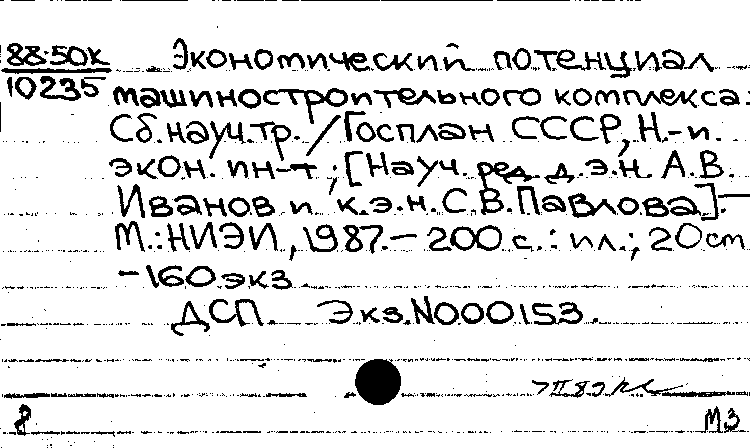 88-50к Экономический потенциал
10235 машиностроительного комплекса:
Сб.науч.тр. / Госплан СССР, Н.-и.
экон. ин-т ; [Науч. ред. д.э.н. А.В.
Иванов и к.э.н. С.В.Павлова].—
М.: НИЭИ, 1987.— 200 с. : ил. ; 20 cm
—160 экз.
ДСП. Экз.N000153.
8 МЗ